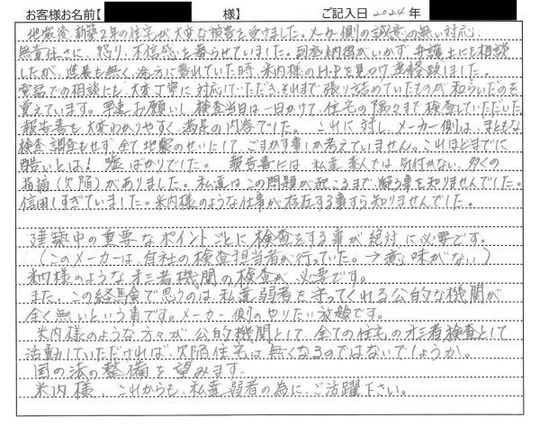 お客様お名前【 様】 ご記入日 2024 年
地震後、新築2年の住宅が大変な被害を受けました。メーカー側の誠意の無い対応、
無責任さに、怒り、不信感を募らせていました。到底納得がいかず、弁護士にも相談
したが、進展も無く、途方に暮れていた時、米内様のHPを見つけ、連絡致しました。
電話での相談にも、大変丁寧に対応していただき、それまで張り詰めていたものが和らいだのを
覚えています。早速お願いし、検査当日は一日かけて、住宅の隅々まで検査していただいた
報告書も大変わかりやすく、満足の内容でした。これに対し、メーカー側は、まともな
検査調査もせず、全て地震のせいにして、ごまかす事しか考えていません。これほどまでに
酷いとは! 嘘ばかりでした。 報告書には、私達素人では気付かない、多くの
指摘(欠陥)がありました。私達はこの問題が起こるまで、疑う事を知りませんでした。
信用しすぎていました。米内様のような仕事が存在する事すら知りませんでした。
建築中の重要なポイントごとに検査をする事が絶対に必要です。
(このメーカーは自社の検査担当者が行っていた。→意味がない)
米内様のような第三者機関の検査が必要です。
また、この経験で思うのは、私達弱者を守ってくれる公的な機関が
全く無いという事です。メーカー側のやりたい放題です。
米内様のような方々が公的機関として、全ての住宅の第三者検査として
活動していただければ、欠陥住宅は無くなるのではないでしょうか。
国の法の整備を望みます。
米内様、これからも、私達弱者の為に、ご活躍下さい。